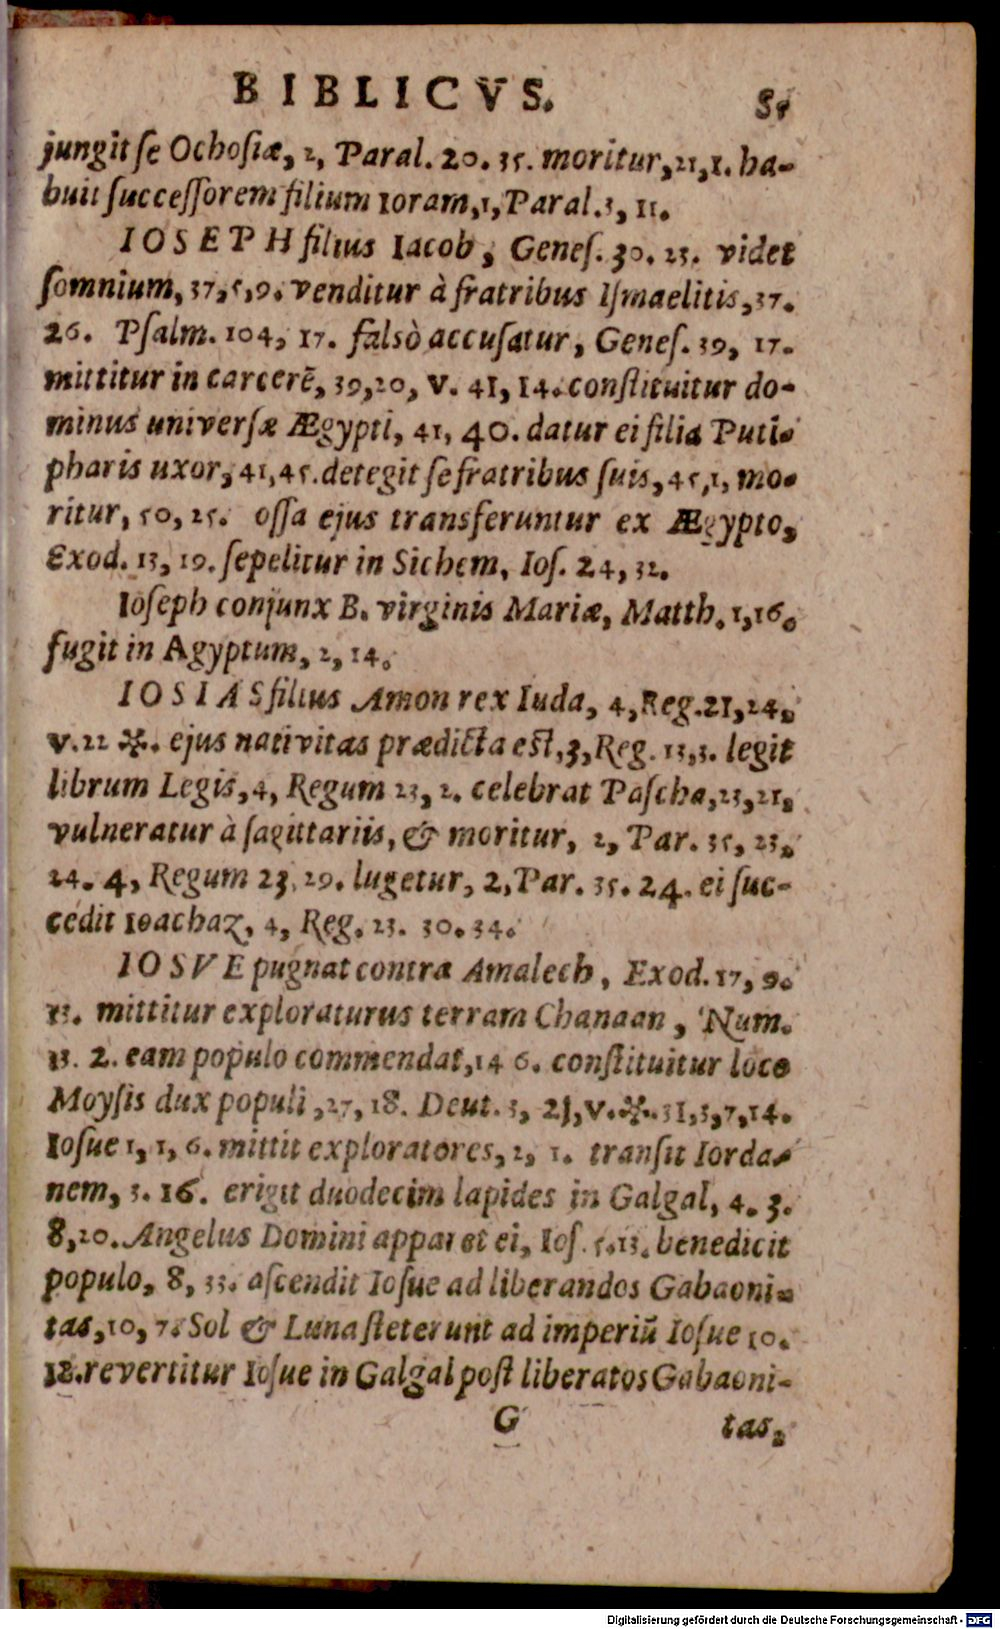 BIBLICVS. 81
jungit se Ochosiæ, 2, Paral. 20. 35. moritur, 21, 1. ha-
buit successorem filium Ioram, 1, Paral. 3, 11.
IOSEPH filius Iacob, Genes. 30. 23. videt
somnium, 37, 5, 9. venditur à fratribus Ismaelitis, 37.
26. Psalm. 104, 17. falsò accusatur, Genes. 39, 17.
mittitur in carcerē, 39, 20, V. 41, 14. constituitur do-
minus universæ Ægypti, 41, 40. datur ei filia Puti-
pharis uxor, 41, 45. detegit se fratribus suis, 45, 1, mo-
ritur, 50, 25. ossa ejus transferuntur ex Ægypto,
Exod. 13, 19. sepelitur in Sichem, Ios. 24, 32.
Ioseph conjunx B. virginis Mariæ, Matth. 1, 16.
fugit in Agyptum, 2, 14.
IOSIAS filius Amon rex Iuda, 4, Reg. 21, 24,
v. 22 ✲. ejus nativitas prædicta est, 3, Reg. 13, 3. legit
librum Legis, 4, Regum 23, 2. celebrat Pascha, 23, 21,
vulneratur à sagittariis, & moritur, 2, Par. 35, 23,
24. 4, Regum 23, 29. lugetur, 2, Par. 35. 24. ei suc-
cedit Ioachaz, 4, Reg. 23. 30. 34.
IOSVE pugnat contra Amalech, Exod. 17, 9.
13. mittitur exploraturus terram Chanaan, Num.
13. 2. eam populo commendat, 14 6. constituitur loco
Moysis dux populi, 27, 18. Deut. 3, 21, V. ✲. 31, 3, 7, 14.
Iosue 1, 1, 6. mittit exploratores, 2, 1. transit Iorda-
nem, 3. 16. erigit duodecim lapides in Galgal, 4. 3.
8, 20. Angelus Domini apparet ei, Ios. 5. 13. benedicit
populo, 8, 33. ascendit Iosue ad liberandos Gabaoni-
tas, 10, 7. Sol & Luna steterunt ad imperiū Iosue 10.
12. revertitur Iosue in Galgal post liberatos Gabaoni-
G tas,
Digitalisierung gefördert durch die Deutsche Forschungsgemeinschaft - DFG